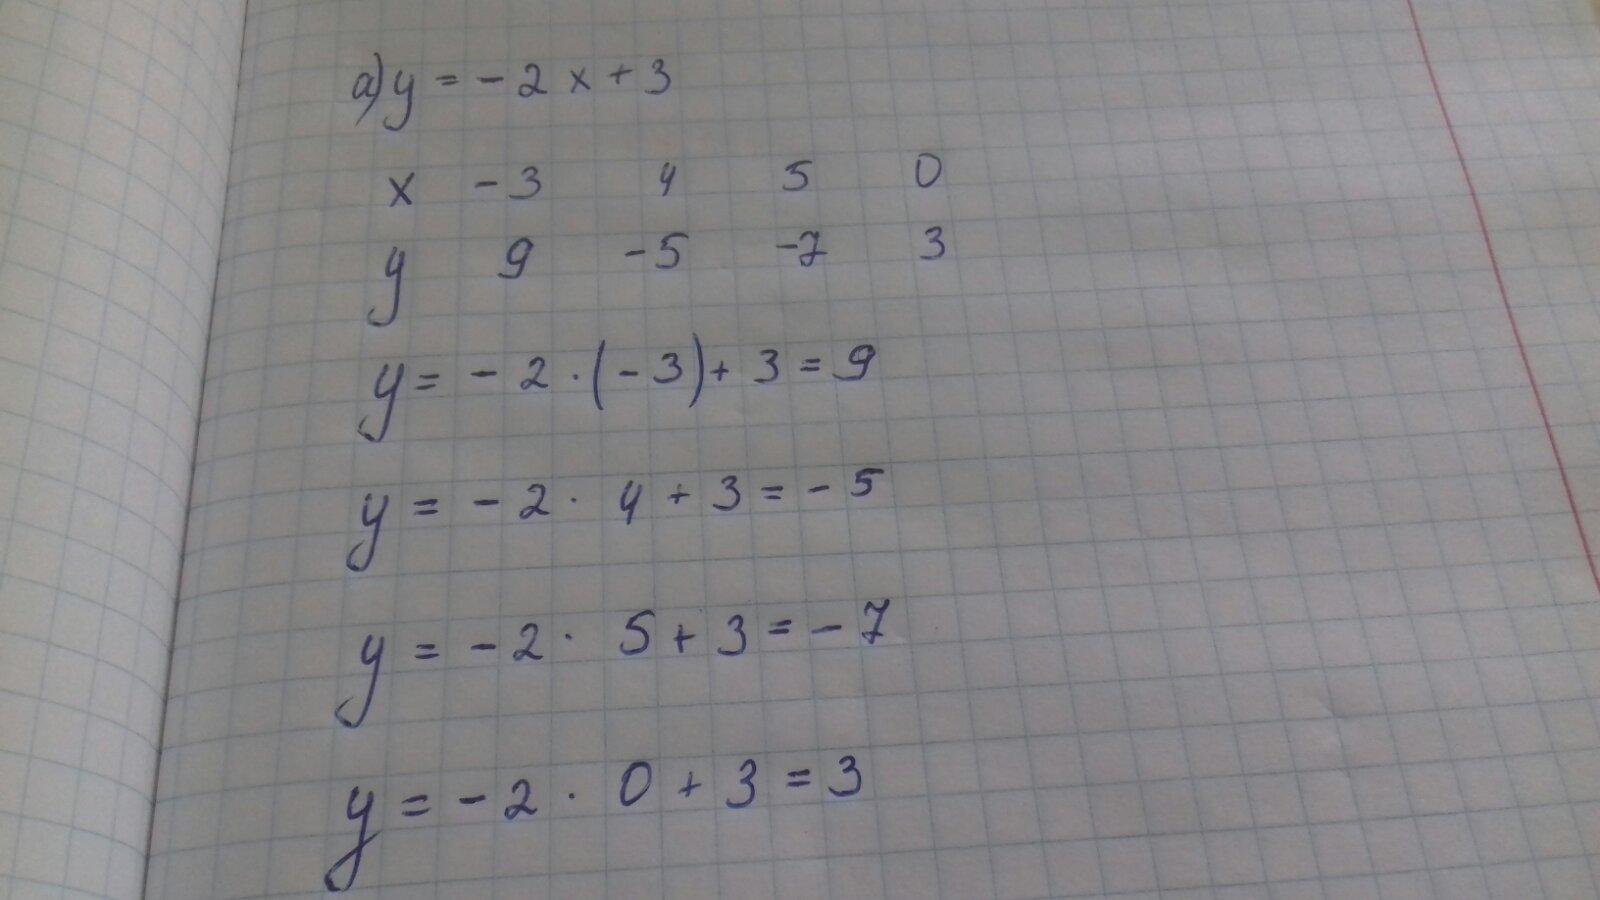 a) y = - 2 x + 3
x - 3 4 5 0
y 9 - 5 - 7 3
y = - 2 · (- 3) + 3 = 9
y = - 2 · 4 + 3 = - 5
y = - 2 · 5 + 3 = - 7
y = - 2 · 0 + 3 = 3